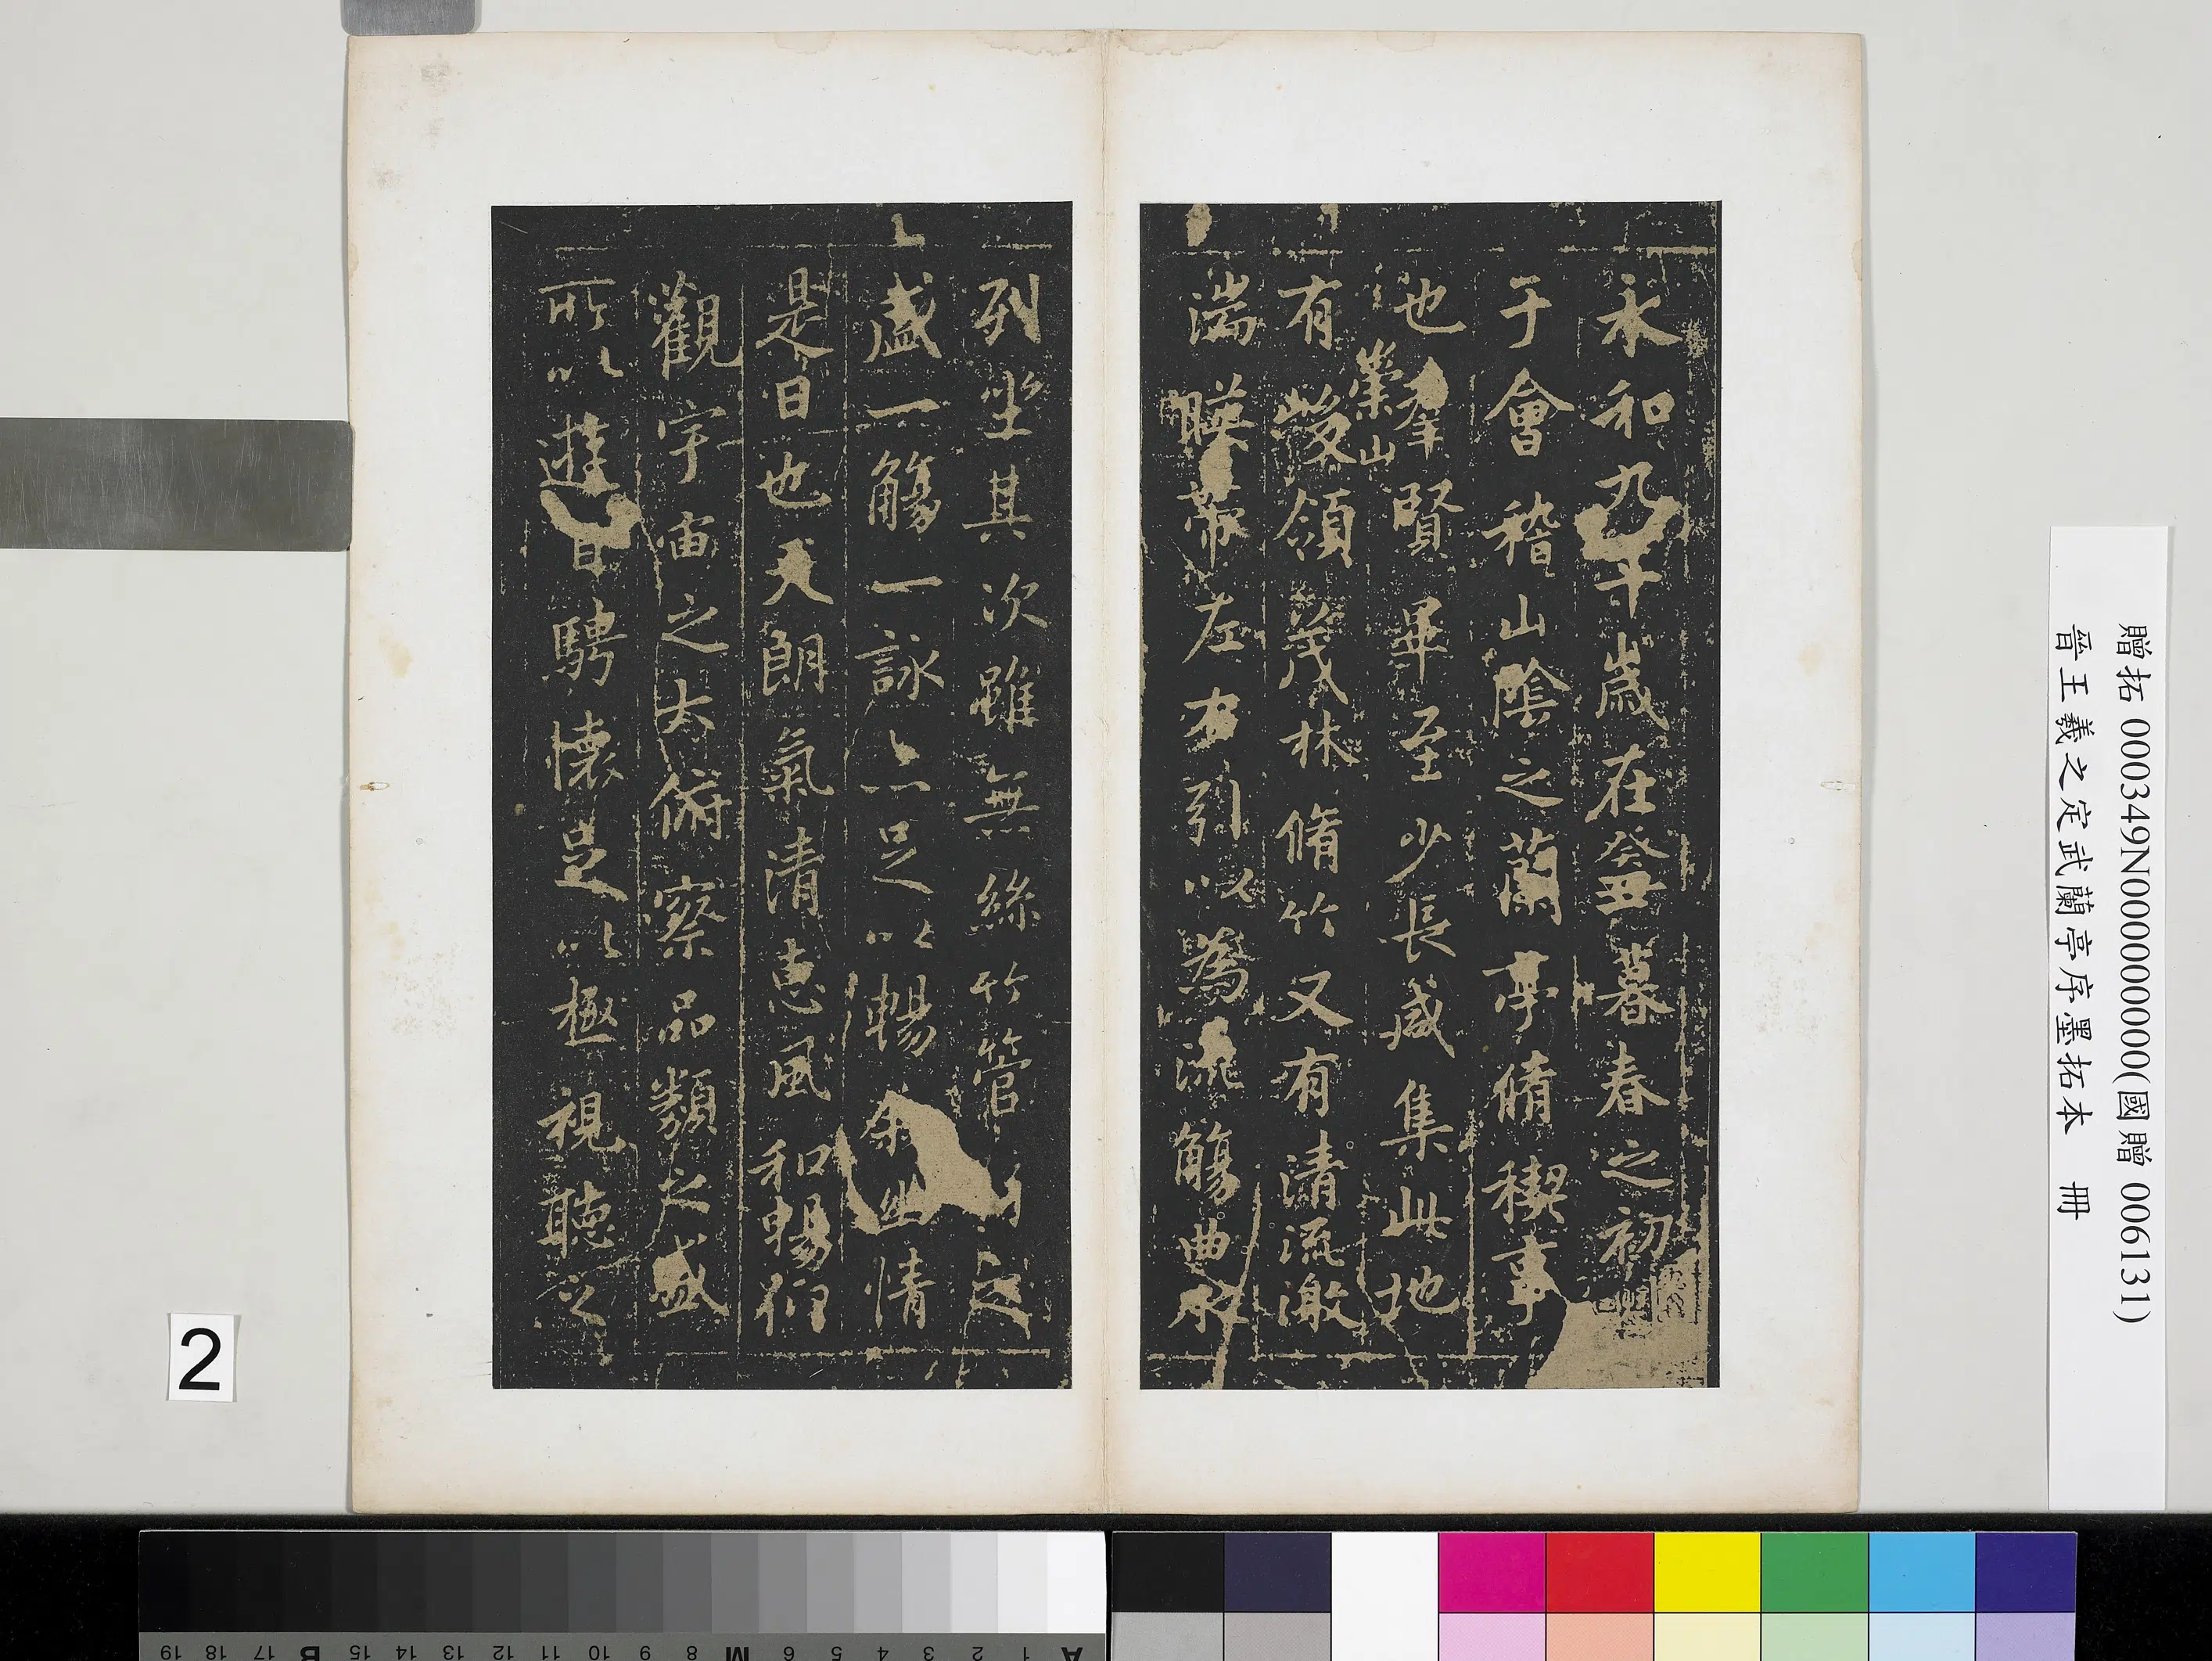 永和九年歲在癸丑暮春之初會
于會稽山陰之蘭亭脩稧事
也羣賢畢至少長咸集此地
有崇山峻領茂林脩竹又有清流激
湍暎帶左右引以為流觴曲水
列坐其次雖無絲竹管弦之
盛一觴一詠亦足以暢敘幽情
是日也天朗氣清惠風和暢仰
觀宇宙之大俯察品類之盛
所以遊目騁懷足以極視聽之
贈拓 000349N000000000(國贈 006131)
晉王羲之定武蘭亭序墨拓本 冊
2
19 18 17 B 15 14 13 12 11 10 9 8 M 6 5 4 3 2 1 A